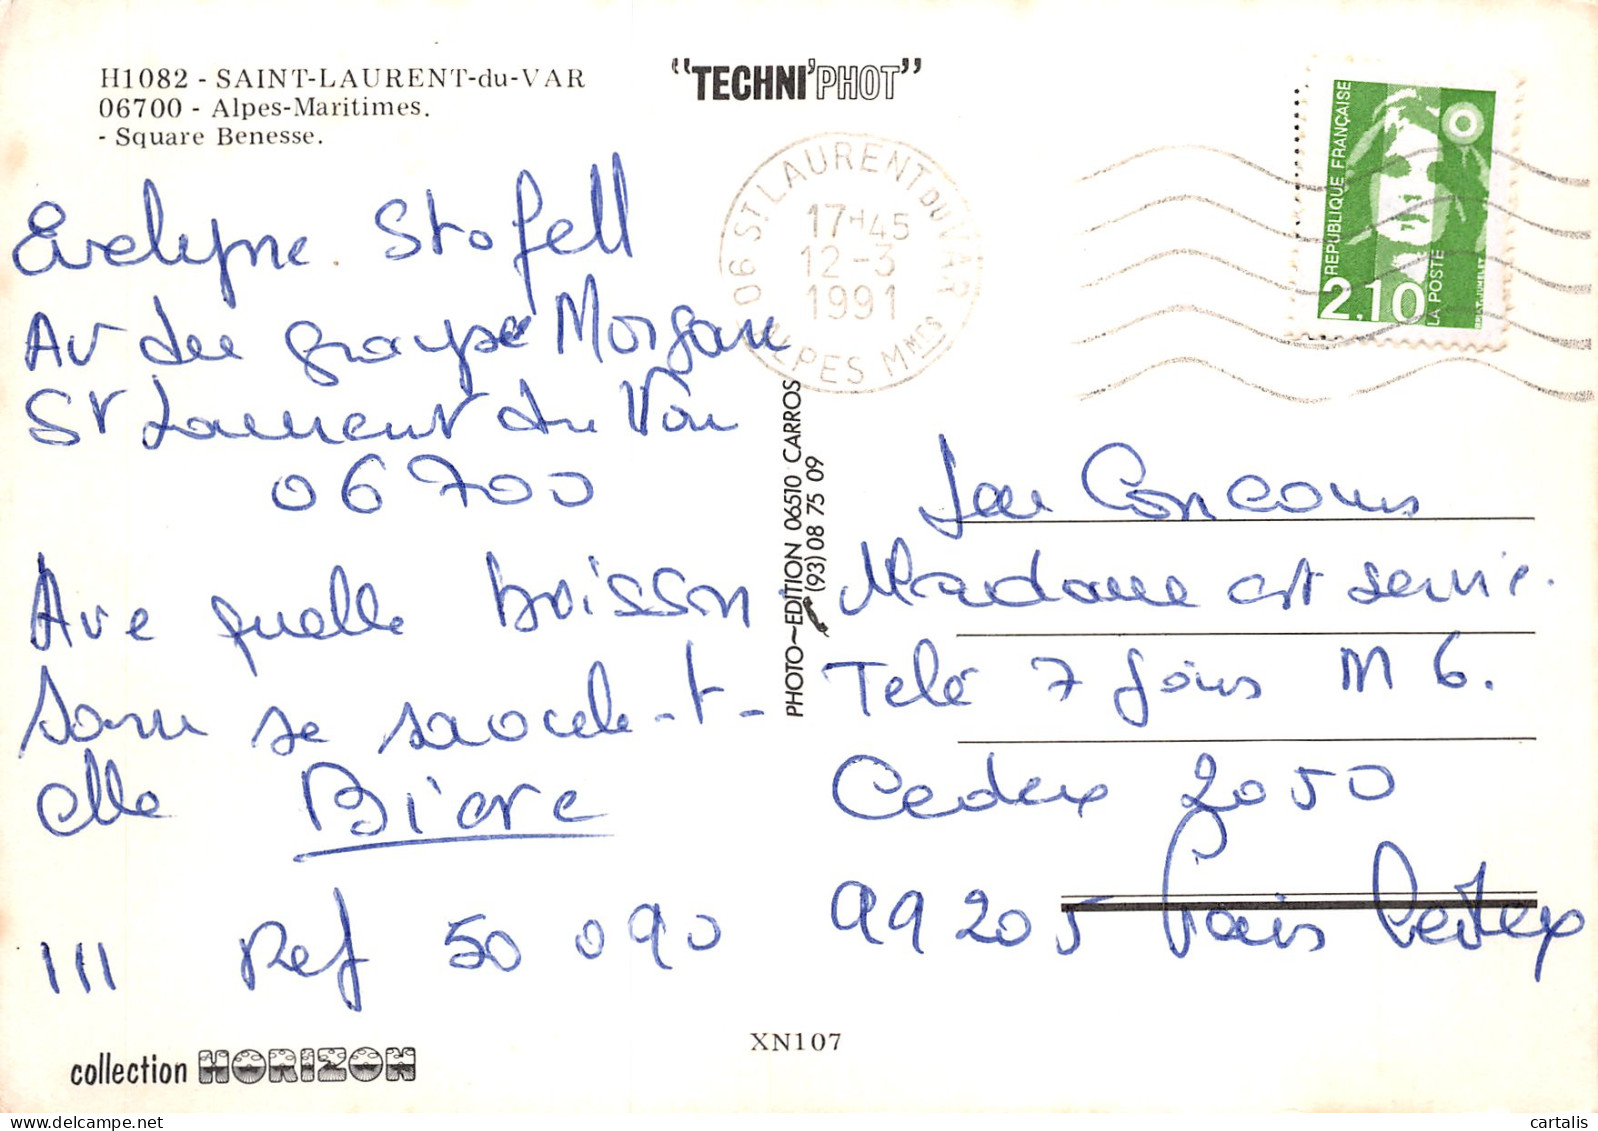 H1082 - SAINT-LAURENT-du-VAR
06700 - Alpes-Maritimes.
- Square Benesse.
"TECHNI'PHOT"
06 ST LAURENT DU VAR
17H45
12-3
1991
ALPES MMES
REPUBLIQUE FRANÇAISE
2.10
LA POSTE
Evelyne Stofell
Av du groupe Morgan
St Laurent du Var
06700
Ave quelle boisson
Sam se saoule-t-
elle Bière
111 Ref 50 090
PHOTO~EDITION 06510 CARROS
(93) 08 75 09
Jeu Concours
Madame est servie.
Télé 7 Jours M 6.
Cedex 2050
99205 Paris Cedex
collection HORIZON
XN107
cartalis.com